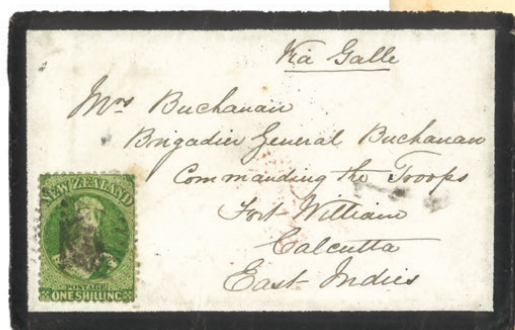 Via Galle
Mrs Buchanan
Brigadier General Buchanan
Commanding the Troops
Fort William
Calcutta
East Indies
NEW ZEALAND
POSTAGE
ONE SHILLING